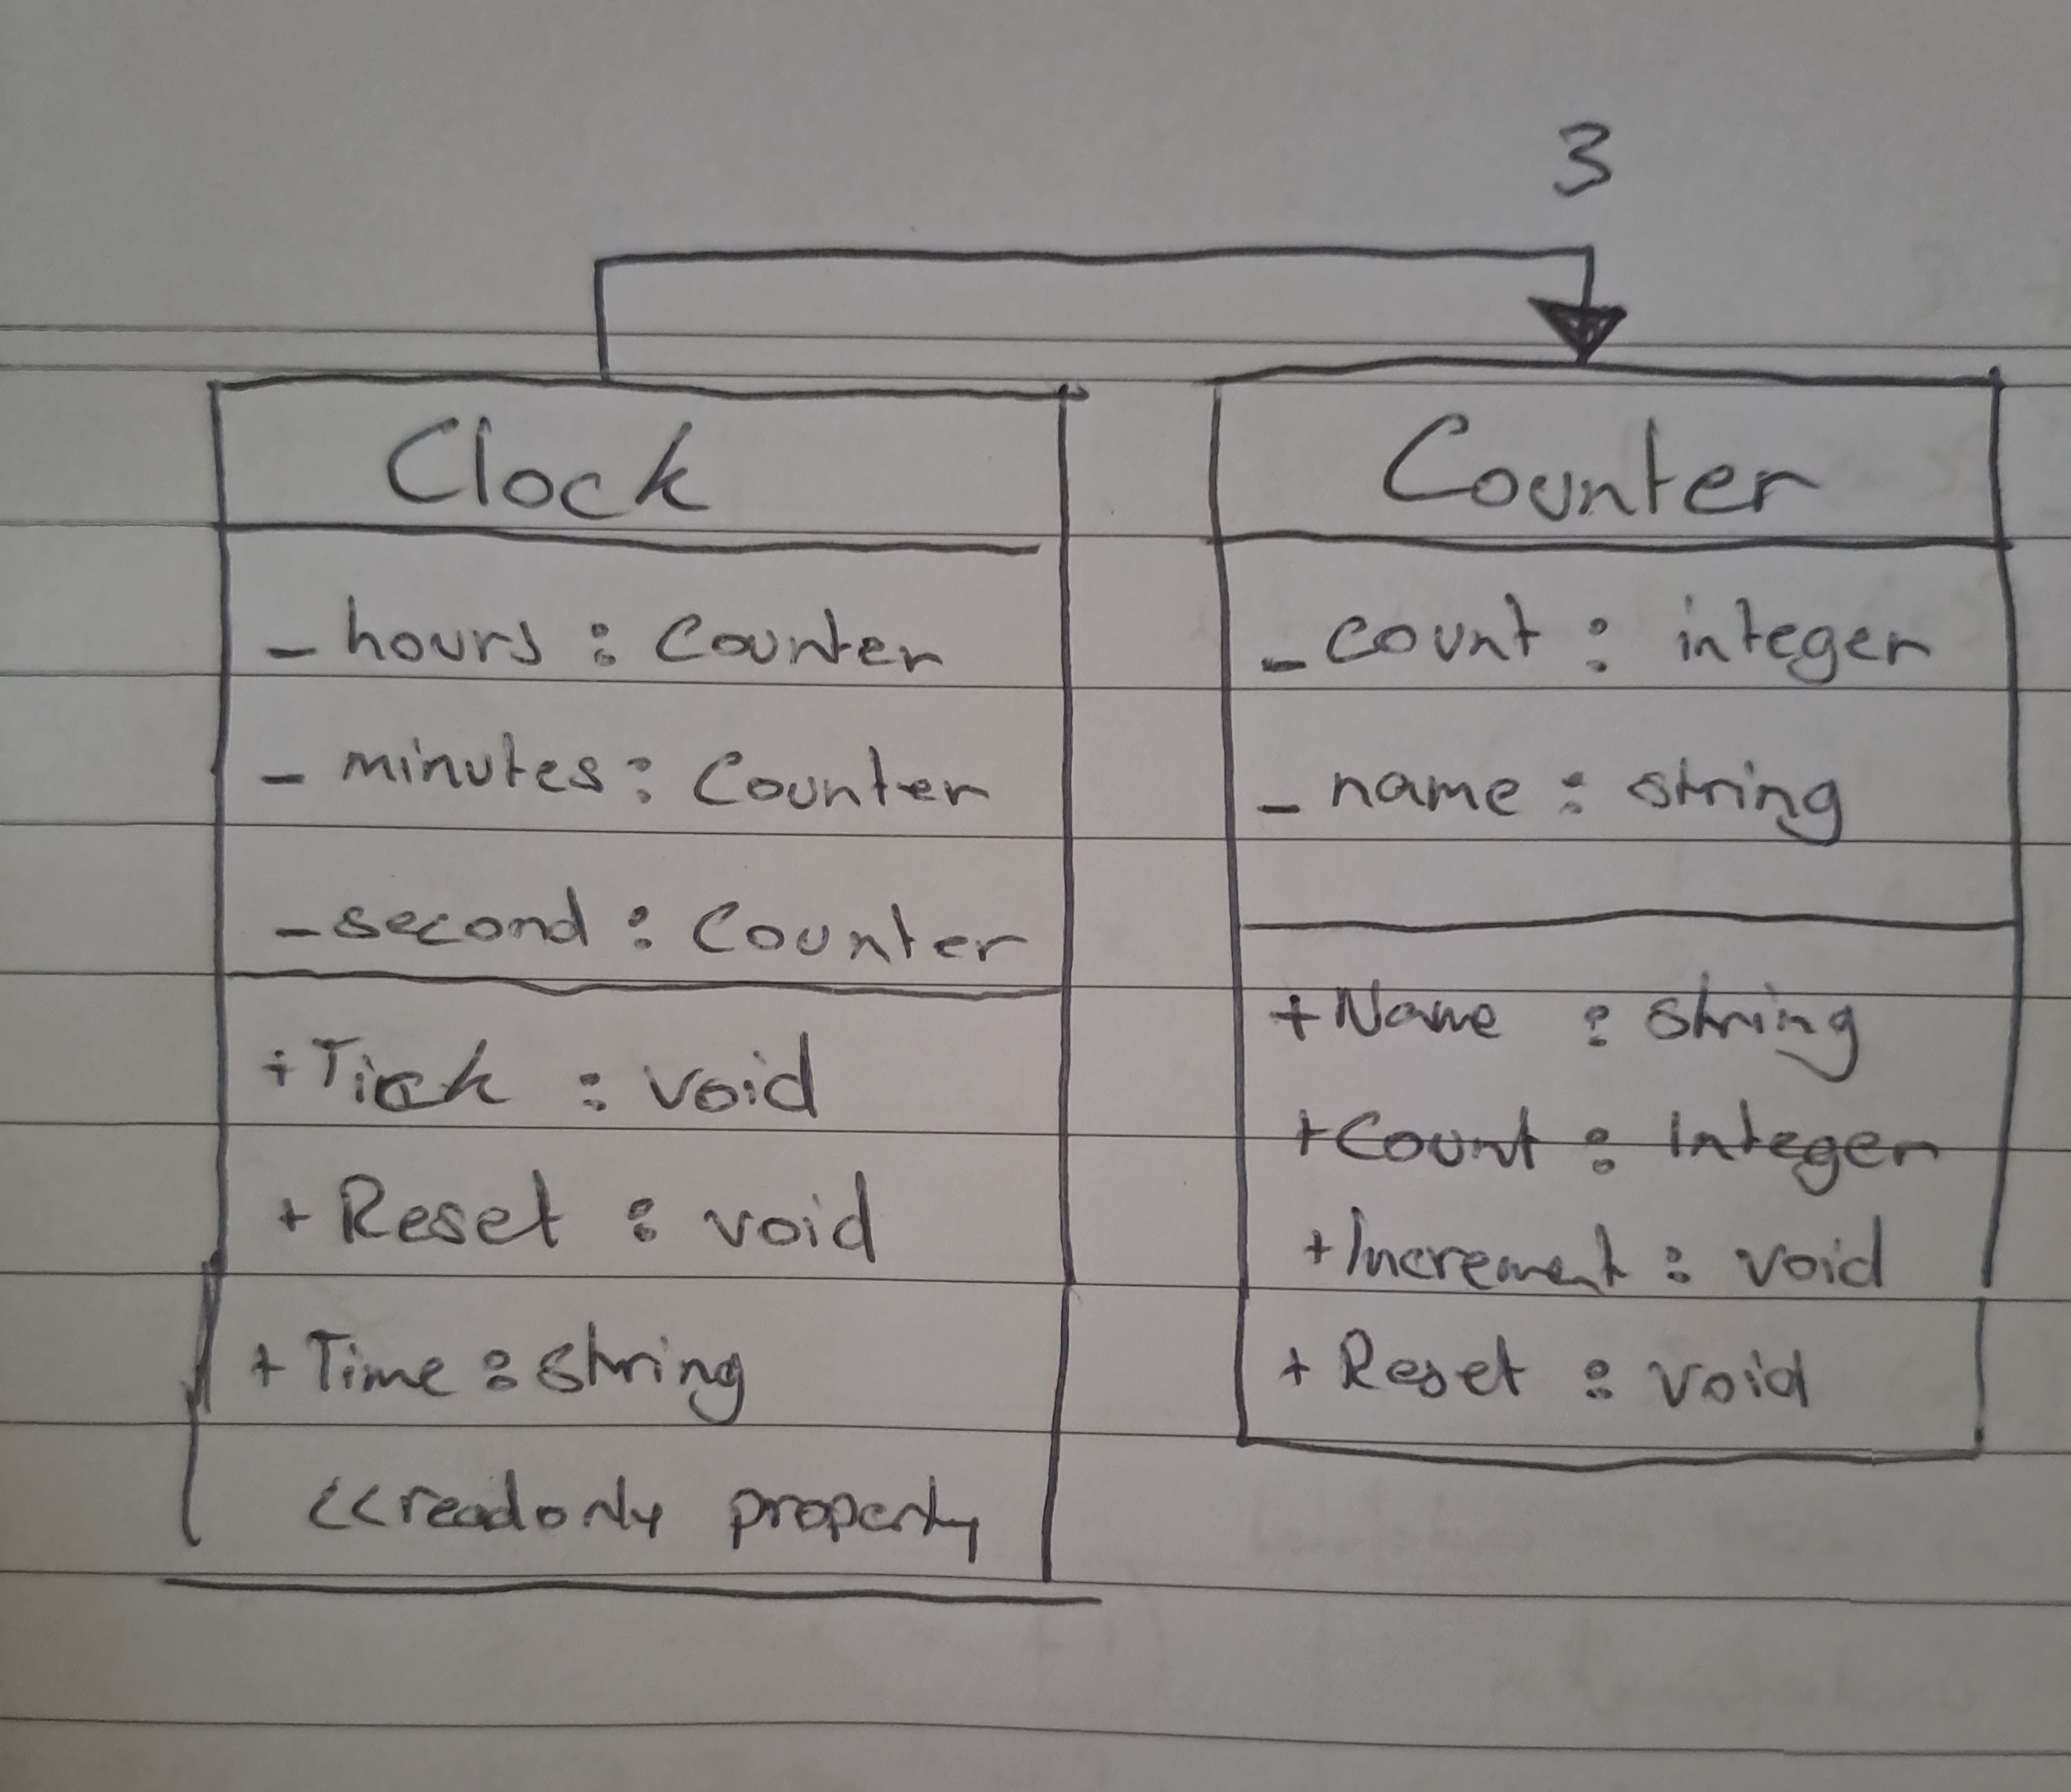 3
Clock
- hours : Counter
- minutes : Counter
- second : Counter
+ Tick : void
+ Reset : void
+ Time : string
<<readonly property
Counter
- count : integer
- name : string
+ Name : string
+ Count : Integer
+ Increment : void
+ Reset : void